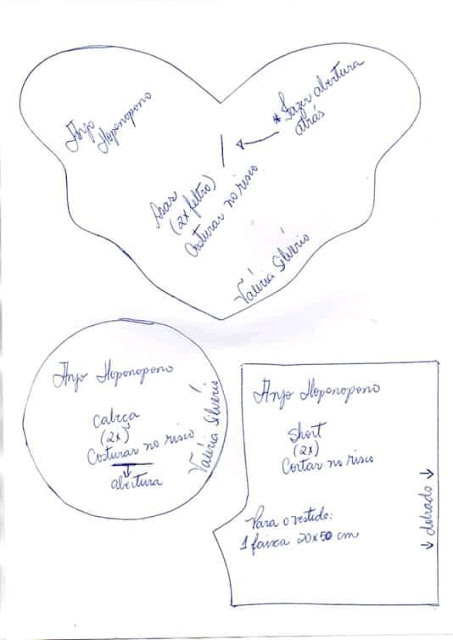 Anjo
Hoponopono
* Fazer abertura
atrás
Asas
(2x feltro)
Costurar no risco
Valéria Silvério
Anjo Hoponopono
cabeça
(2x)
Costurar no risco
abertura
Valéria Silvério
Anjo Hoponopono
Short
(2x)
Cortar no risco
dobrado
Para o vestido:
1 faixa 20x50 cm